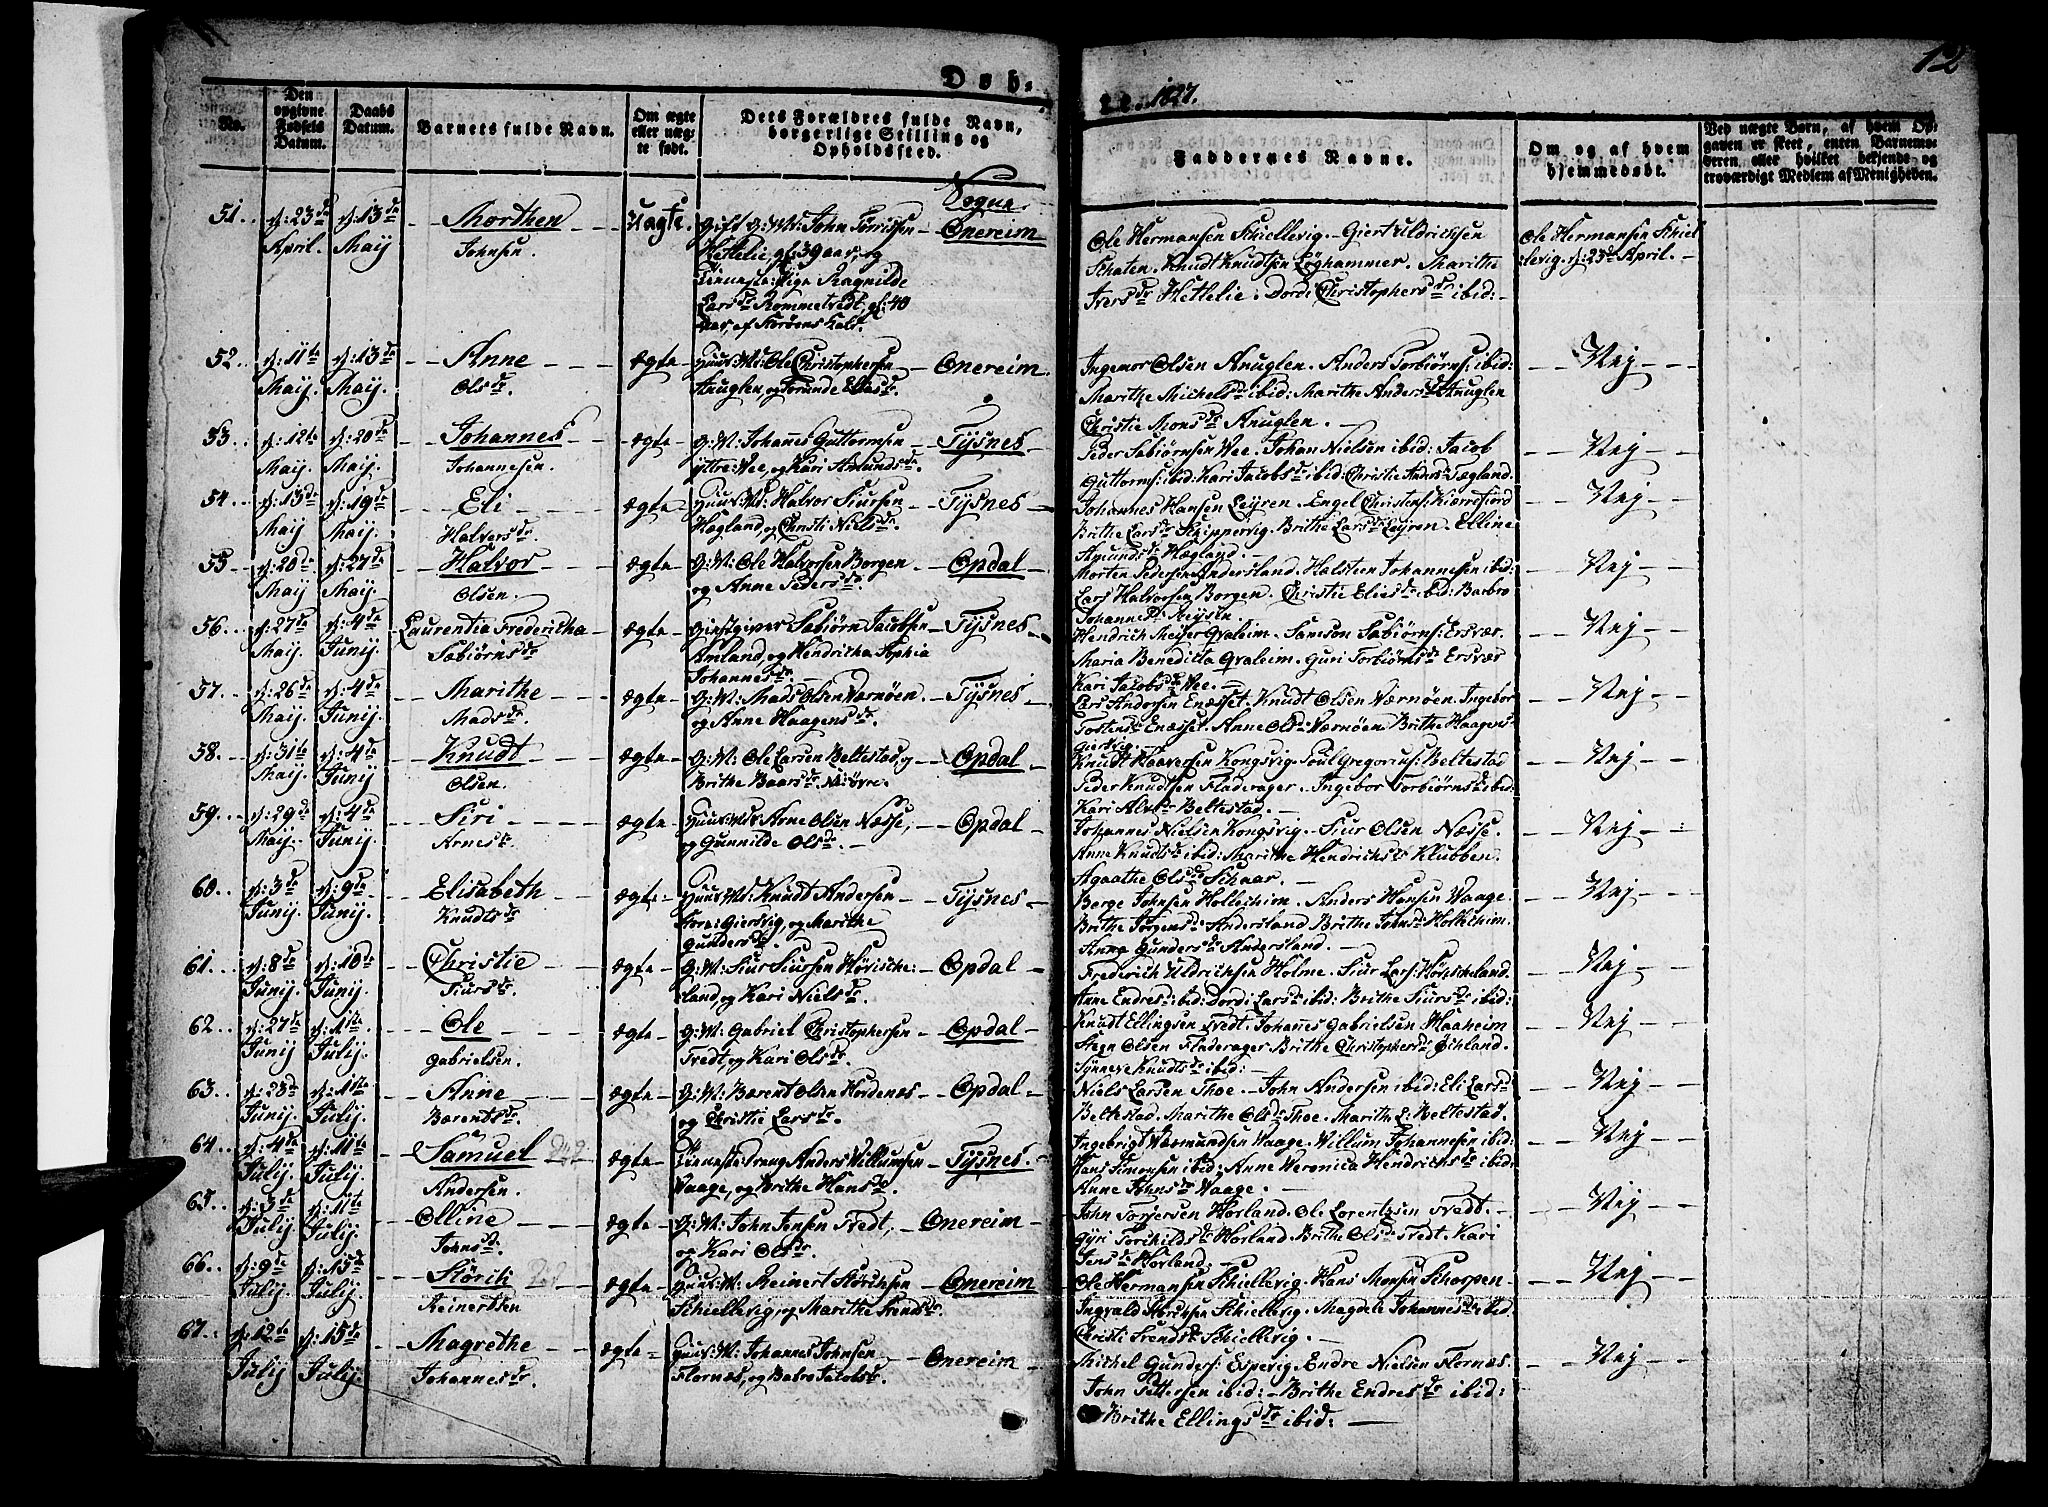 12
Døb-
te. 1827.
No.
Den opgivne Fødsels Datum.
Daabs Datum.
Barnets fulde Navn.
Om ægte eller uægte født.
Dets Forældres fulde Navn, borgerlige Stilling og Opholdssted.
Faddernes Navne.
Om og af hvem hjemmedøbt.
Ved uægte Børn, af hvem Opgaven er skeet, enten Barnemoderen, eller hvilket bekjendt og troværdigt Medlem af Menigheden.
Sogne.
51. d: 23de April. d: 13de Maij Morthen Johnsen. Uægte. Gift G: M: John Siurssen
Hetlelie, gl: 39 aar, og
Tieneste Pige Ragnilde
Larsdr Rommetvedt, gl: 40
Aar, af Storøens Kald. Onereim
Ole Hermansen Schiellevig. Giert Uldricksen
Schaten. Knudt Knudtsen Løghammer. Marithe
Iversdr Hetlelie. Dordi Christophersdr ibid:
Ole Hermansen Schiellevig. d: 23de April.
52. d: 11te Maij. d: 13de Maij. Anne Olsdr. ægte Huus M: Ole Christophersen
Anuglen, og Onereim
Ingemor Olsen Anuglen. Anders Torbiørns: ibid:
Marithe Michelsdr ibid: Marithe Andersdr Anuglen
Christie Monsdr Anuglen. Nej
53. d: 12te Maij. d: 20de Maij. Johannes Johannesen. ægte G: M: Johannes Guttormsen
yttre Wee, og Kari Amundsdr. Tysnes
Peder Sæbiørnsen Wee. Johan Nielsen ibid: Jacob
Guttorms: ibid: Kari Jacobsdr ibid: Christie Hægland. Nej
54. d: 13de Maij d: 19de Maij. Eli Halversdr. ægte Huus M: Halvor Siursen
Hægland, og Christi Nielsdr. Tysnes
Johannes Hansen Leyren. Engel Christens: Kierrefiord
Brithe Larsdr Schippervig. Brithe Larsdr Leyren. Elline
Amundsdr Hægland. Nej
55 d: 20de Maij d: 27de Maij. Halvor Olsen. ægte G: M: Ole Halvorsen Borgen
og Anne Pedersdr. Opdal
Morten Pedersen Andersland. Halsteen Johannesen ibid:
Lars Halvorsen Borgen. Christie Eliesdr ibid: Barbro
Johannesdr Reysen. Nej
56. d: 27de Maij. d: 4de Junij. Laurentia Fredericha Sæbiørnsdr ægte Giestgiver Sæbiørn Jacobsen
Amland, og Hendricha Sophia
Johannesdr. Tysnes
Hendrich Meyer Qvaleim. Samson Sæbiørns: Ersvær.
Maria Benedicta Qvaleim. Guri Torbiørnsdr Ersvær
Kari Jacobsdr Wee. Nej
57. d: 26de Maij. d: 4de Junij. Marithe Madsdr. ægte G: M: Mads Olsen Værnøen.
og Anne Haagensdr. Tysnes
Lars Andersen Enæsset. Knudt Olsen Værnøen. Ingebor
Tostensdr Enæsset. Anne Olsdr Værnøen. Brithe Haagensdr
Giersvig. Nej
58. d: 31te Maij. d: 4de Junij Knudt Olsen. ægte G: M: Ole Larsen Beltestad, og
Brithe Baarsdr Opdal
Knudt Haaversen Kongsvig. Poul Gregorius: Beltestad
Peder Knudtsen Fladerager. Ingebor Torbiørnsdr ibid:
Kari Alvsdr Beltestad. Nej
59. d: 29de Maij. d: 4de Junij. Siri Arnesdr. ægte Huusmdr Arne Olsen Næsse,
og Gunnilde Olsdr. Opdal
Johannes Nielsen Kongsvig. Siur Olsen Næsse.
Anne Knudtsdr ibid: Marithe Hendrichsdr Klubben.
Agaathe Olsdr Schaar. Nej
60. d: 3de Junij. d: 9de Junij. Elisabeth Knudtsdr ægte Huus M: Knudt Andersen
Store Giersvig, og Marithe
Gundersdr. Tysnes
Berge Johnsen Holleheim. Anders Hansen Waage.
Brithe Jørgensdr Andersland Brithe Johnsdr Holleheim.
Anna Gundersdr Andersland. Nej
61. d: 8de Junij. d: 10de Junij. Christie Siursdr. ægte G: M: Siur Siursen Høviske-
land, og Kari Nielsdr. Opdal
Frederich Uldrichsen Holme. Siur Lars: Høvischeland.
Anne Endresdr ibid: Dordi Larsdr ibid: Brithe Siursdr ibid: Nej
62. d: 27de Junij d: 1ste Julij. Ole Gabrielsen. ægte G: M: Gabriel Christophersen
Tvedt, og Kari Olsdr. Opdal
Knudt Ellingsen Tvedt. Johannes Gabrielsen Haaheim
Stegn Olsen Fladerager. Brithe Christophersdr Øihland.
Synneve Knudtsdr ibid: Nej
63. d: 23de Junij d: 1ste Julij. Anne Bærentsdr. ægte G: M: Bærent Olsen Hordenes
og Christie Larsdr. Opdal
Niels Larsen Thoe. John Andersen ibid: Eli Larsdr
Beltestad. Marithe Olsdr Thoe. Marithe L: Beltestad. Nej
64. d: 4de Julij. d: 11te Julij. Samuel Andersen. 242 ægte Tieneste Dreng Anders Villumsen
Vaage, og Brithe Hansdr. Tysnes.
Ingebrigt Wærmundsen Waage. Willum Johannesen ibid:
Hans Simonsen ibid: Anne Veronica Hendrichsdr ibid:
Anne Johnsdr Waage. Nej
65. d: 3de Julij d: 11te Julij. Olline Johnsdr. ægte G: M: John Jensen Tvedt,
og Kari Olsdr. Onereim
John Torgersen Horland. Ole Lorentzsen Tvedt.
Gyri Torchildsdr Horland. Brithe Olsdr Tvedt. Kari
Jensdr Horland. Nej
66. d: 9de Julij. d: 15de Julij. Störch Reinertsen ægte Huus M: Reinert Störchsen
Schiellevig, og Marithe Svendsdr. Onereim
Ole Hermansen Schiellevig. Hans Monsen Schorpen
Ingvald Störchsen Schiellevig. Magdele Johannesdr ibid.
Christi Svendsdr Schiellevig. Nej
67. d: 12te Julij d: 15de Julij. Magrethe Johannesdr. ægte Huus: M: Johannes Johnsen
Flornæs, og Babro Jacobsdr. Onereim
Michel Gunders: Espevig. Endre Nielsen Flornæs.
John Pettersen ibid: Brithe Endresdr ibid:
Brithe Ellingsdr ibid: Nej